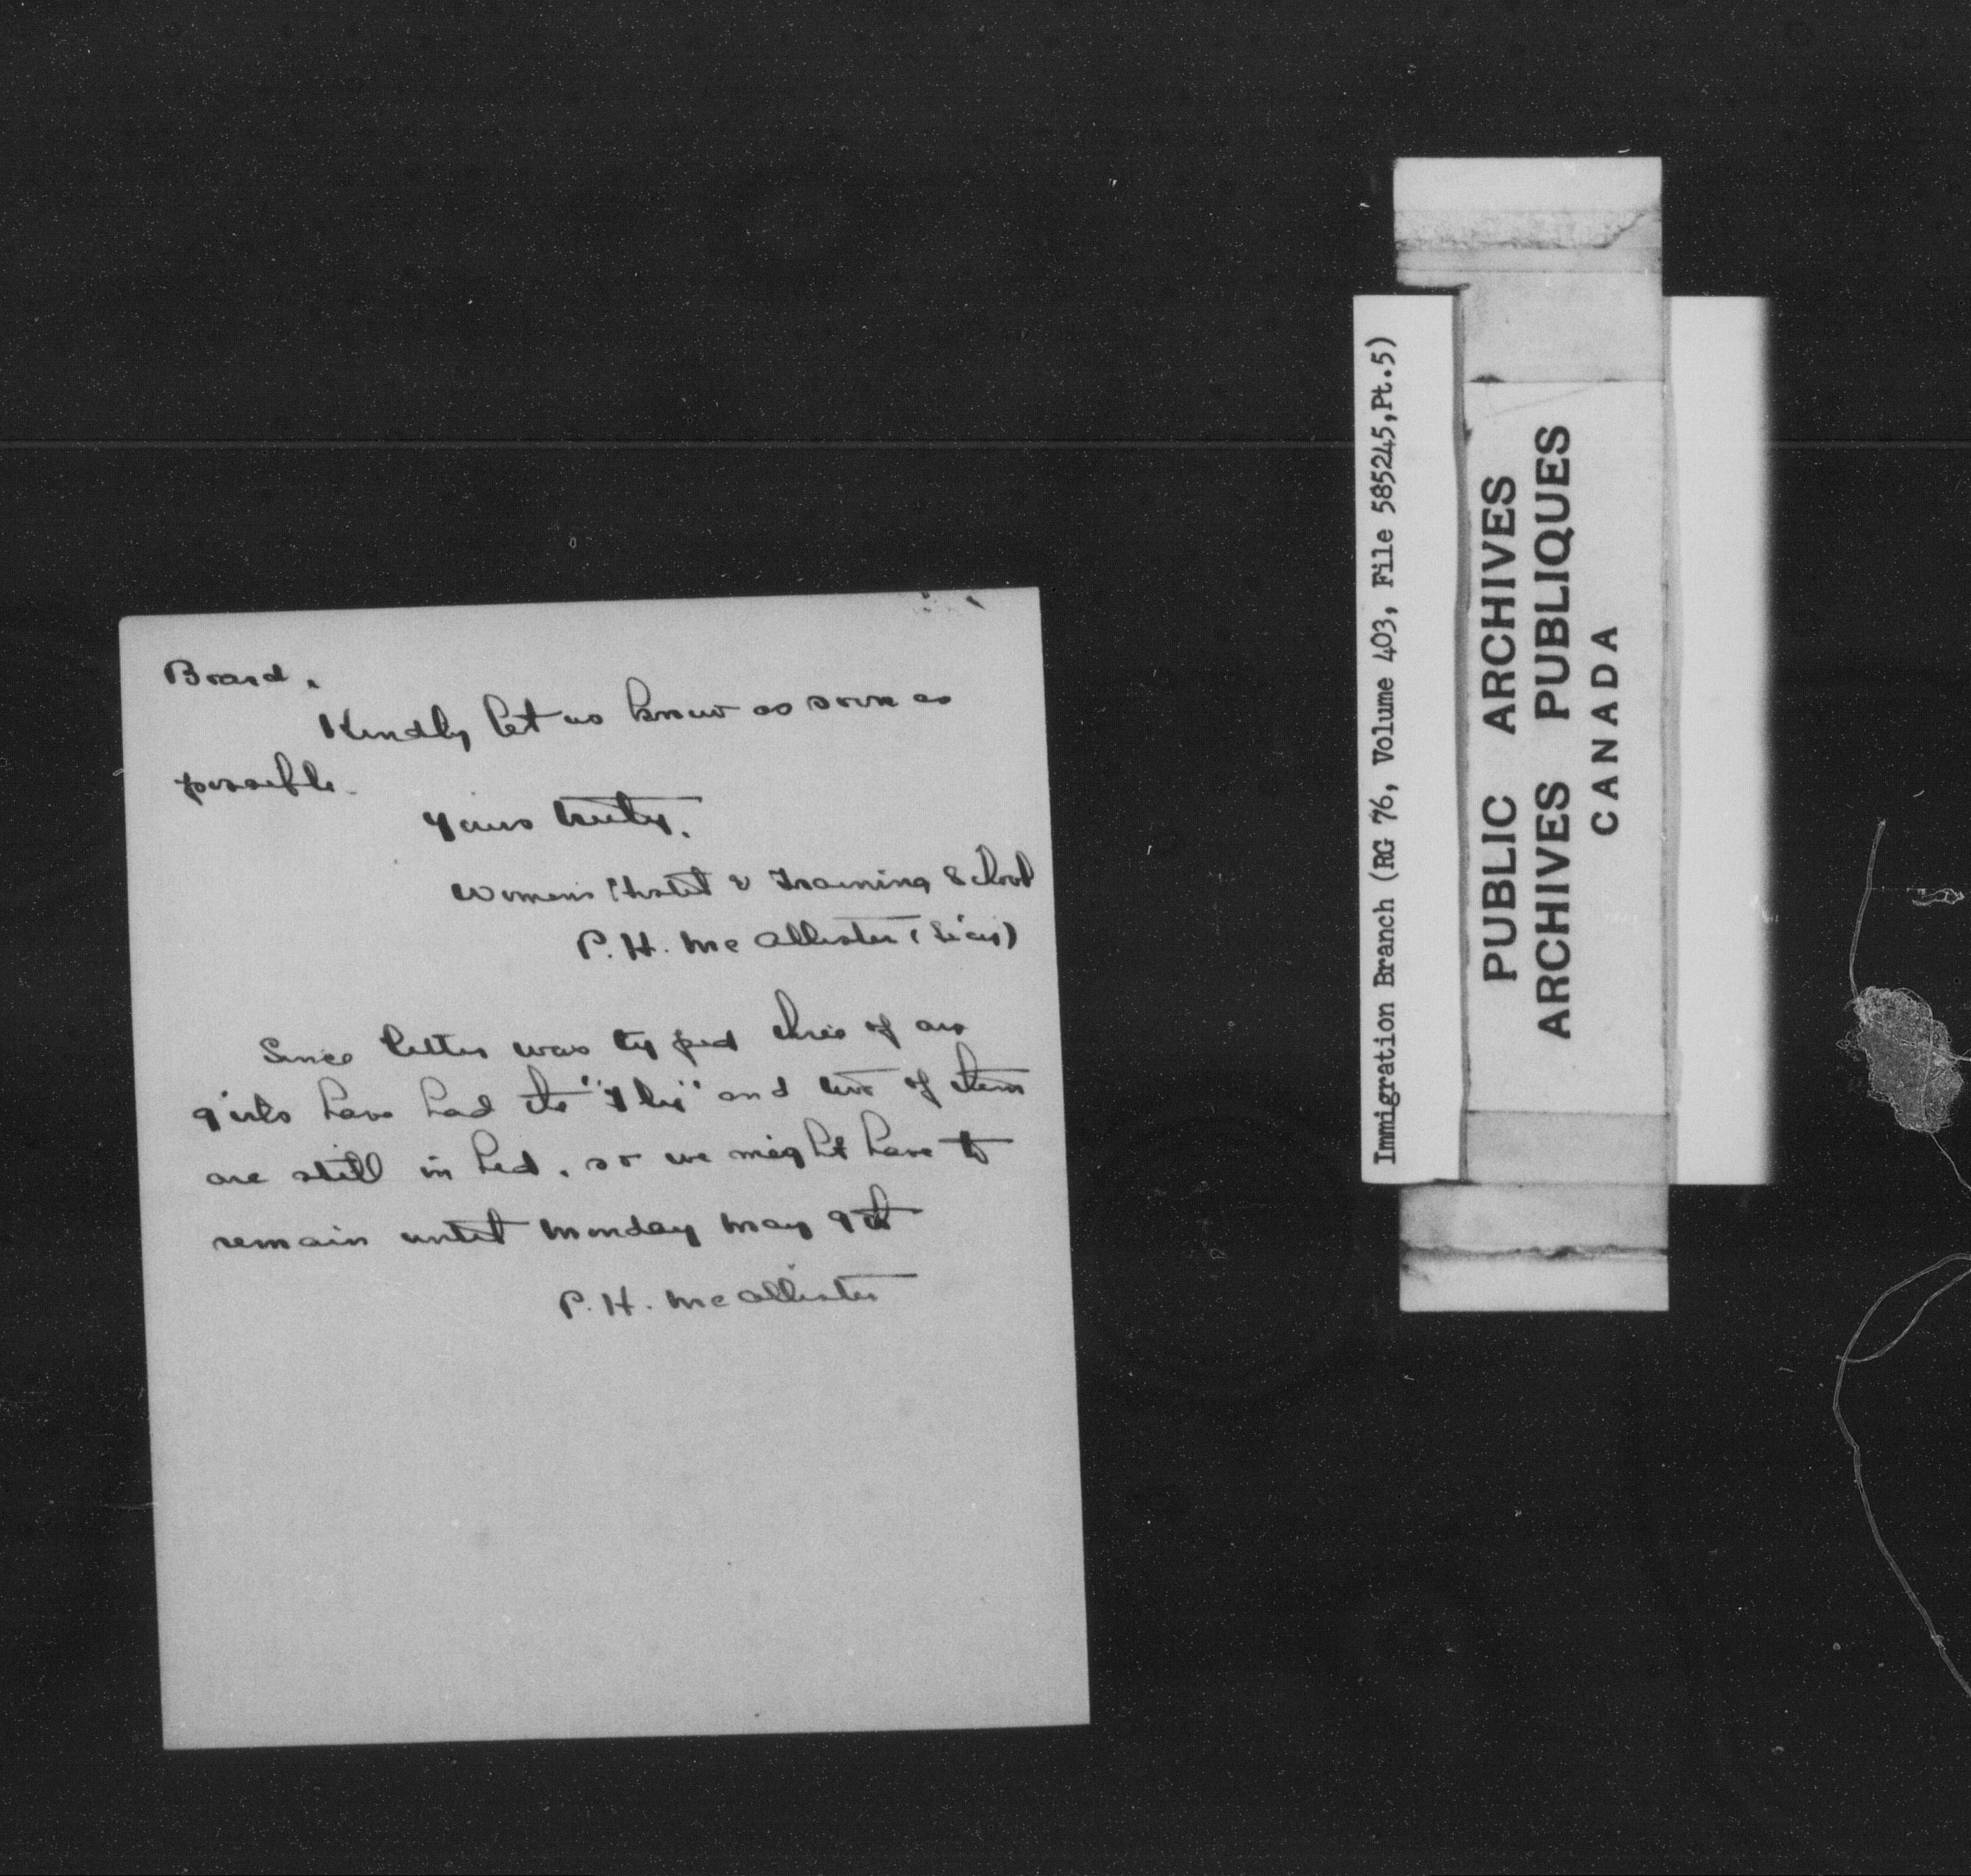 Board.
Kindly let us know as soon as
possible.
Yours truly,
Womens Hostel & Training School
P. H. McAllister (Sec'y)
Since letter was typed three of our
girls have had the "Flu" and two of them
are still in bed, so we might have to
remain until Monday May 9th
P. H. McAllister
Immigration Branch (RG 76, Volume 403, File 585245,Pt.5)
PUBLIC ARCHIVES
ARCHIVES PUBLIQUES
CANADA